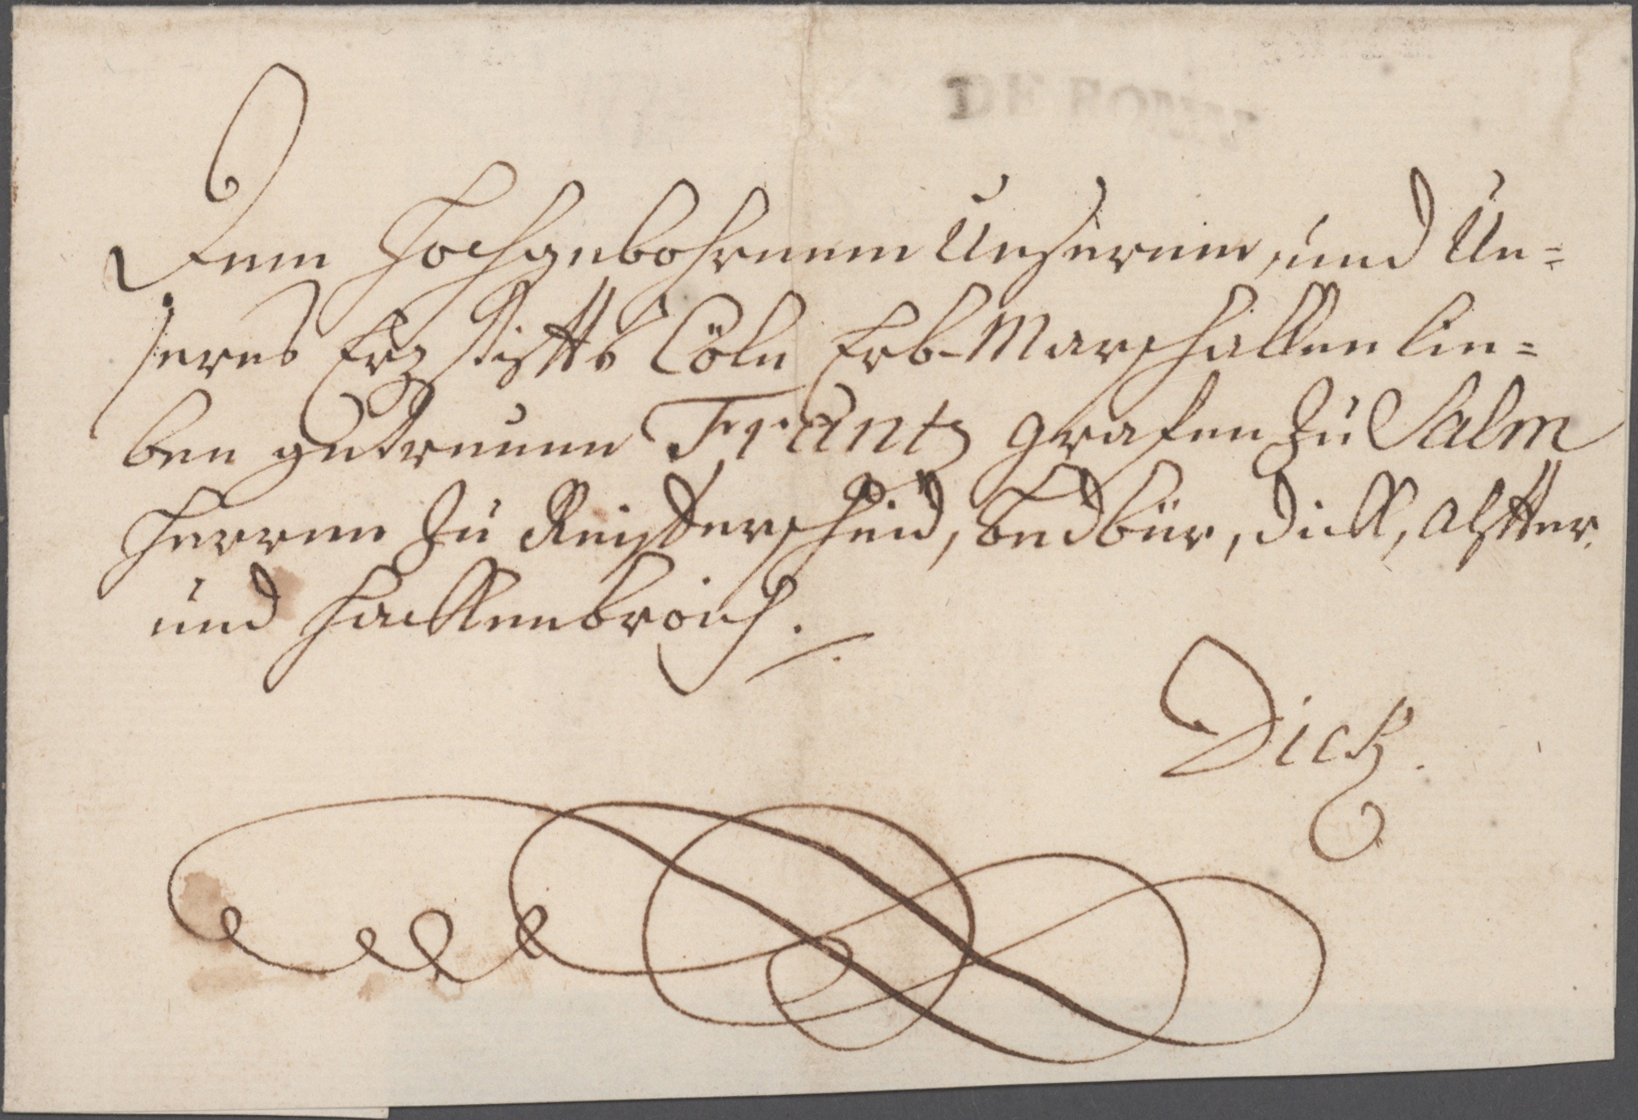 DE BONN
Dem Hochgebohrnem Unserem, und Un=
seres Erz Stiffts Cöln Erb-Marschallen lie=
ben getreuem Frantz Grafen zu Salm
Herren zu Reifferscheid, Bedbür, Dick, Alffter
und Hackenbroich.
Dick.